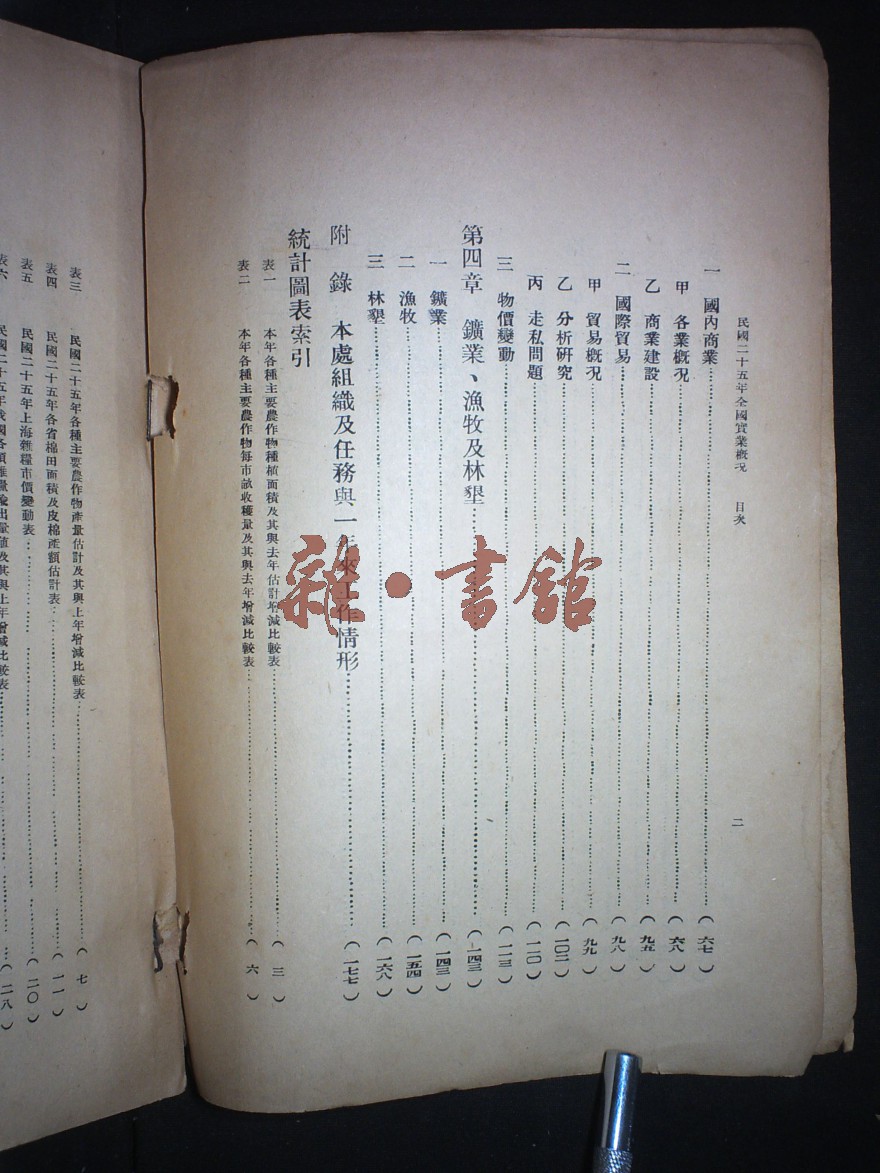 民國二十五年全國實業概況 目次 二
一 國內商業……(六七)
甲 各業概況……(六八)
乙 商業建設……(九五)
二 國際貿易……(九八)
甲 貿易概況……(九九)
乙 分析研究……(一〇二)
丙 走私問題……(一一〇)
三 物價變動……(一一三)
第四章 鑛業、漁牧及林墾……(一四三)
一 鑛業……(一四三)
二 漁牧……(一五四)
三 林墾……(一六八)
附 錄 本處組織及任務與一年來工作情形……(一七七)
統計圖表索引
表一 本年各種主要農作物種植面積及其與去年估計增減比較表……(三)
表二 本年各種主要農作物每市畝收穫量及其與去年增減比較表……(六)
表三 民國二十五年各種主要農作物產量估計及其與上年增減比較表……(七)
表四 民國二十五年各省棉田面積及皮棉產額估計表……(一一)
表五 民國二十五年上海雜糧市價變動表……(二〇)
表六 民國二十五年我國各項雜糧輸出量值及其與上年增減比較表……(二八)
雜·書館